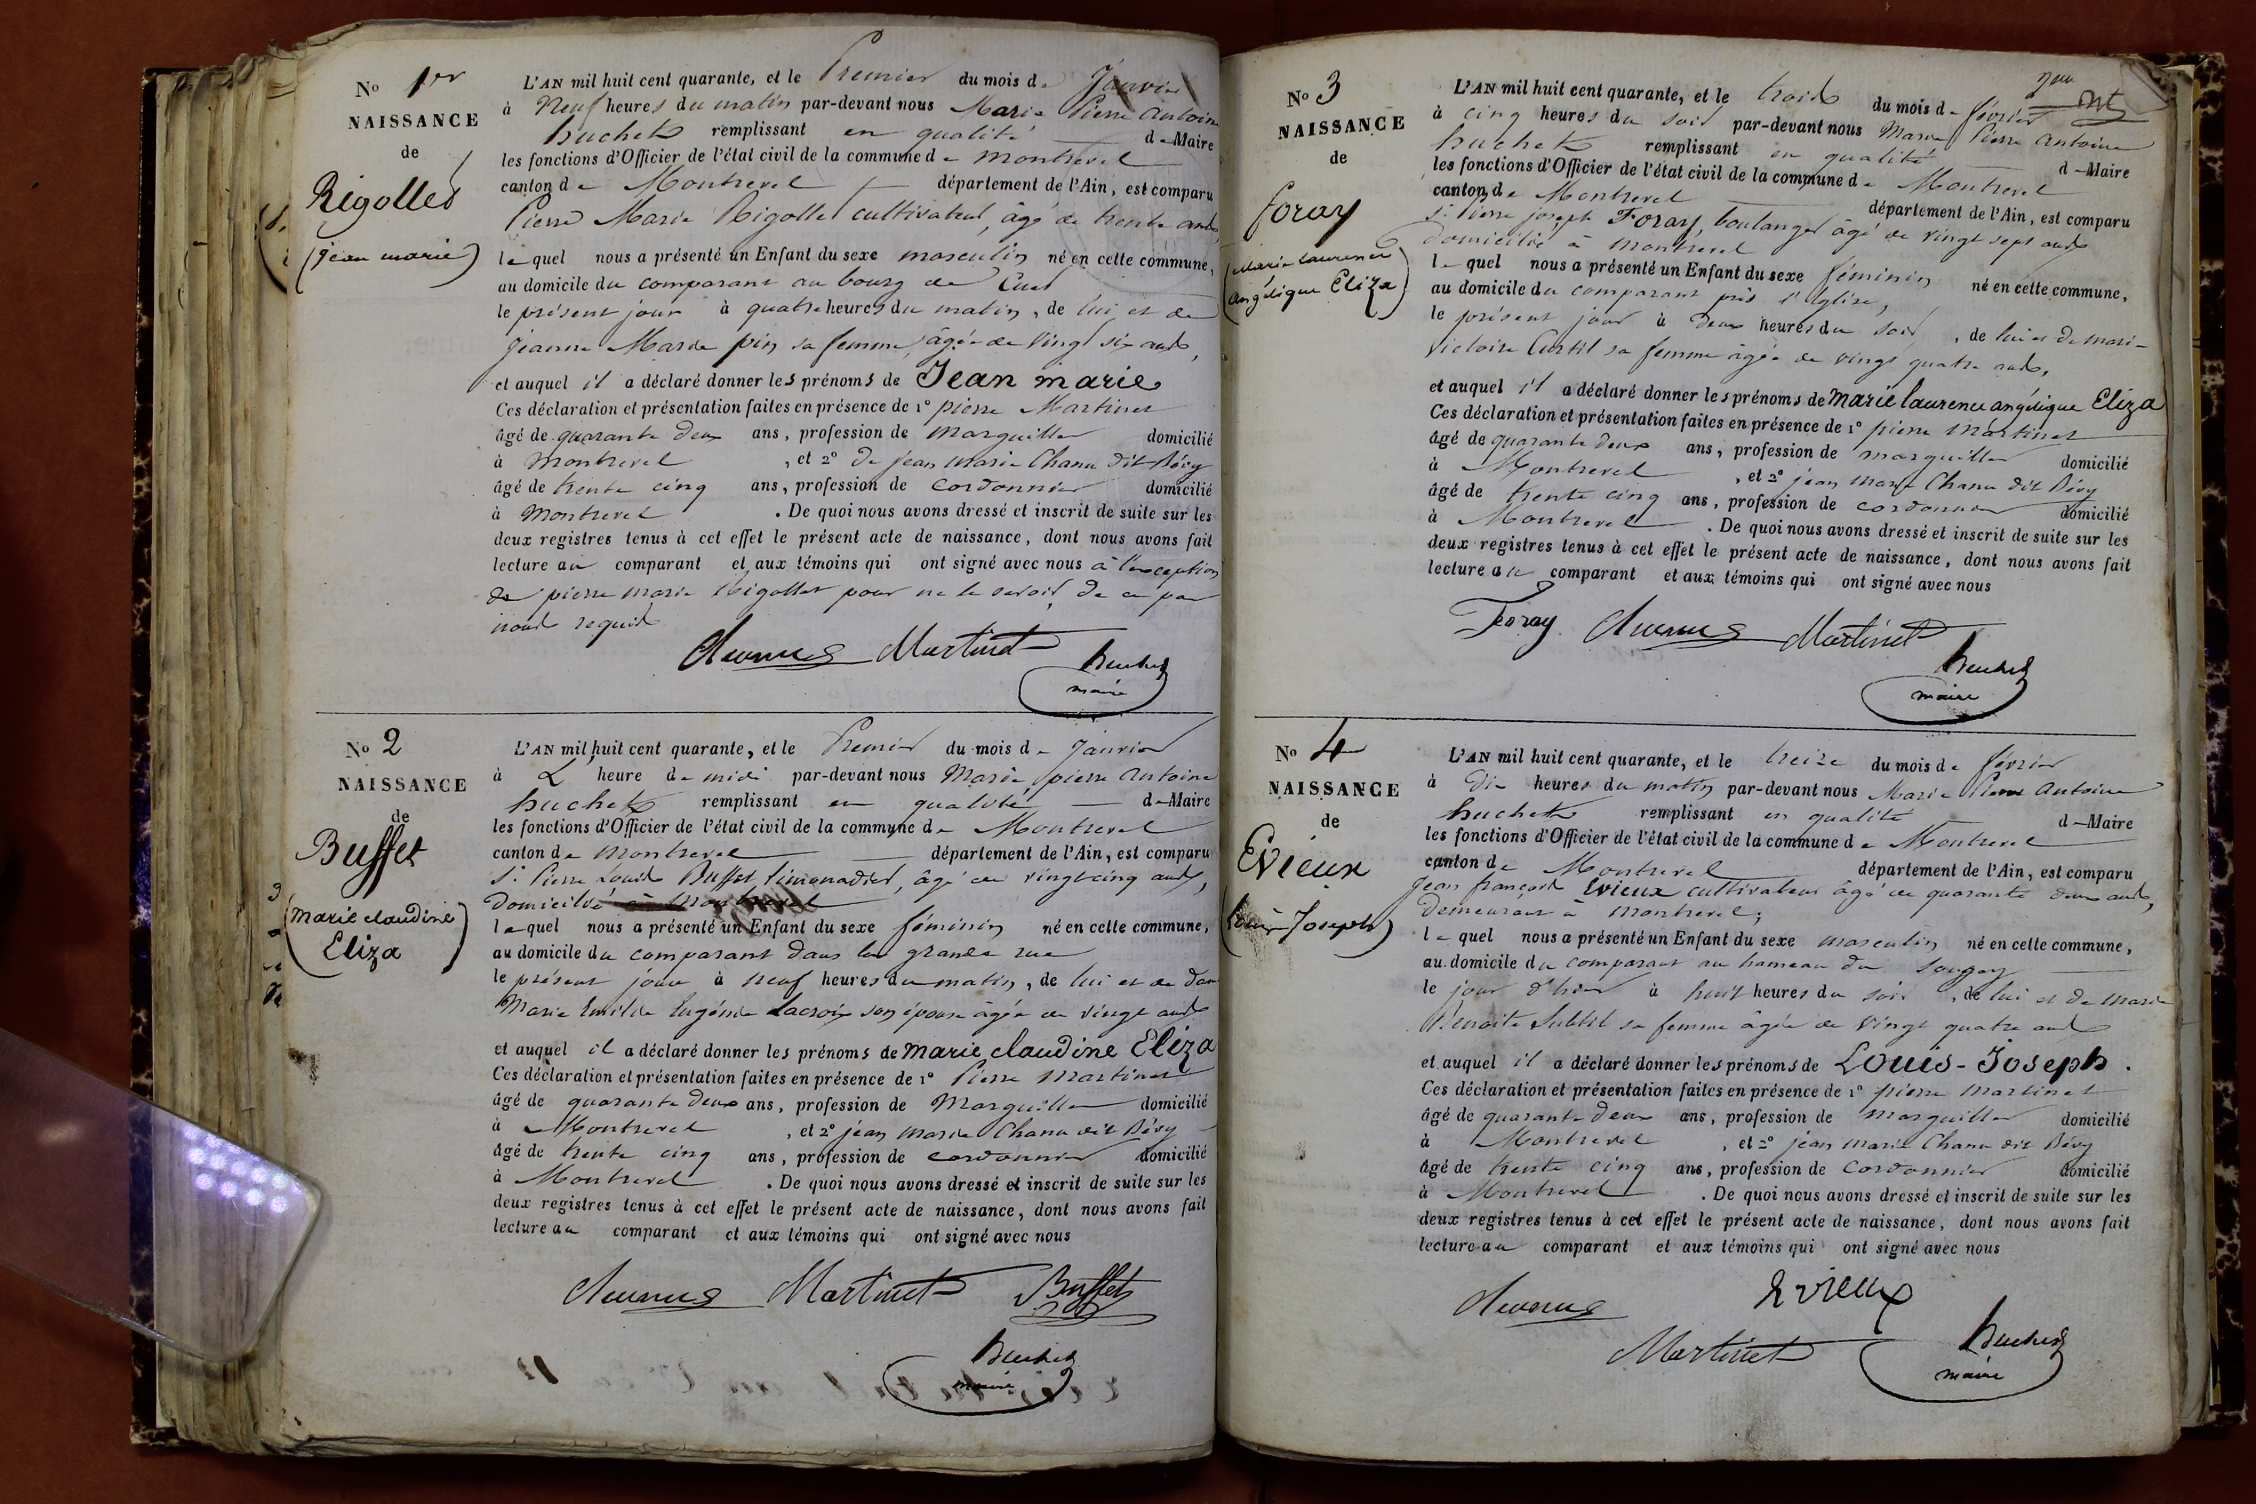 No 1er
NAISSANCE
de
Rigollet
(jean marie)
L'AN mil huit cent quarante, et le Premier du mois de Janvier
à Neuf heures du matin par-devant nous Marie Pierre Antoine
huchet remplissant en qualité de Maire
les fonctions d'Officier de l'état civil de la commune de Montrevel
canton de Montrevel département de l'Ain, est comparu
Pierre Marie Rigollet cultivateur, âgé de trente ans,
lequel nous a présenté un Enfant du sexe masculin né en cette commune,
au domicile du comparant au bourg de Cuet
le présent jour à quatre heures du matin, de lui et de
jeanne Marie pin sa femme, âgée de vingt six ans,
et auquel il a déclaré donner les prénoms de Jean marie
Ces déclaration et présentation faites en présence de 1° pierre Martinet
âgé de quarante deux ans, profession de marguillier domicilié
à Montrevel, et 2° de jean marie Chanu dit Bévy
âgé de trente cinq ans, profession de cordonnier domicilié
à Montrevel. De quoi nous avons dressé et inscrit de suite sur les
deux registres tenus à cet effet le présent acte de naissance, dont nous avons fait
lecture au comparant et aux témoins qui ont signé avec nous à l'exception
de pierre marie Rigollet pour ne le savoir de ce par
nous requis
Martinet
huchet
maire
No 2
NAISSANCE
de
Buffet
(marie claudine
Eliza)
L'AN mil huit cent quarante, et le Premier du mois de Janvier
à L heure de midi par-devant nous Marie pierre Antoine
huchet remplissant en qualité de Maire
les fonctions d'Officier de l'état civil de la commune de Montrevel
canton de Montrevel département de l'Ain, est comparu
sr Pierre Louis Buffet limonadier, âgé de vingt cinq ans,
Domicilié à Montrevel
lequel nous a présenté un Enfant du sexe féminin né en cette commune,
au domicile du comparant dans la grande rue
le présent jour à neuf heures du matin, de lui et de
Marie Eugénie Lacroix son épouse âgée de vingt ans
et auquel il a déclaré donner les prénoms de marie claudine Eliza
Ces déclaration et présentation faites en présence de 1° Pierre Martinet
âgé de quarante deux ans, profession de Marguillier domicilié
à Montrevel, et 2° jean marie Chanu dit Bévy
âgé de trente cinq ans, profession de cordonnier domicilié
à Montrevel. De quoi nous avons dressé et inscrit de suite sur les
deux registres tenus à cet effet le présent acte de naissance, dont nous avons fait
lecture au comparant et aux témoins qui ont signé avec nous
Martinet Buffet
huchet
maire
No 3
NAISSANCE
de
foray
(Marie laurence
angélique Eliza)
L'AN mil huit cent quarante, et le trois du mois de février
à cinq heures du soir par-devant nous Marie Pierre Antoine
huchet remplissant en qualité de Maire
les fonctions d'Officier de l'état civil de la commune de Montrevel
canton de Montrevel département de l'Ain, est comparu
sr Pierre joseph Foray, boulanger âgé de vingt sept ans
Domicilié à Montrevel
lequel nous a présenté un Enfant du sexe féminin né en cette commune,
au domicile du comparant près l'église,
le présent jour à deux heures du soir, de lui et de marie
victoire Curtil sa femme âgée de vingt quatre ans,
et auquel il a déclaré donner les prénoms de marie laurence angélique Eliza
Ces déclaration et présentation faites en présence de 1° pierre Martinet
âgé de quarante deux ans, profession de marguillier domicilié
à Montrevel, et 2° jean marie Chanu dit Bévy
âgé de trente cinq ans, profession de cordonnier domicilié
à Montrevel. De quoi nous avons dressé et inscrit de suite sur les
deux registres tenus à cet effet le présent acte de naissance, dont nous avons fait
lecture au comparant et aux témoins qui ont signé avec nous
Foray Martinet
huchet
maire
No 4
NAISSANCE
de
Evieux
(Louis-Joseph)
L'AN mil huit cent quarante, et le treize du mois de février
à dix heures du matin par-devant nous Marie Pierre Antoine
huchet remplissant en qualité de Maire
les fonctions d'Officier de l'état civil de la commune de Montrevel
canton de Montrevel département de l'Ain, est comparu
Jean françois Evieux cultivateur âgé de quarante deux ans,
demeurant à Montrevel;
lequel nous a présenté un Enfant du sexe masculin né en cette commune,
au domicile du comparant au hameau du Sougey
le jour d'hier à huit heures du soir, de lui et de Marie
Benoite Subtil sa femme âgée de vingt quatre ans
et auquel il a déclaré donner les prénoms de Louis-Joseph.
Ces déclaration et présentation faites en présence de 1° pierre Martinet
âgé de quarante deux ans, profession de Marguillier domicilié
à Montrevel, et 2° jean marie Chanu dit Bévy
âgé de trente cinq ans, profession de cordonnier domicilié
à Montrevel. De quoi nous avons dressé et inscrit de suite sur les
deux registres tenus à cet effet le présent acte de naissance, dont nous avons fait
lecture au comparant et aux témoins qui ont signé avec nous
Evieux
Martinet
huchet
maire